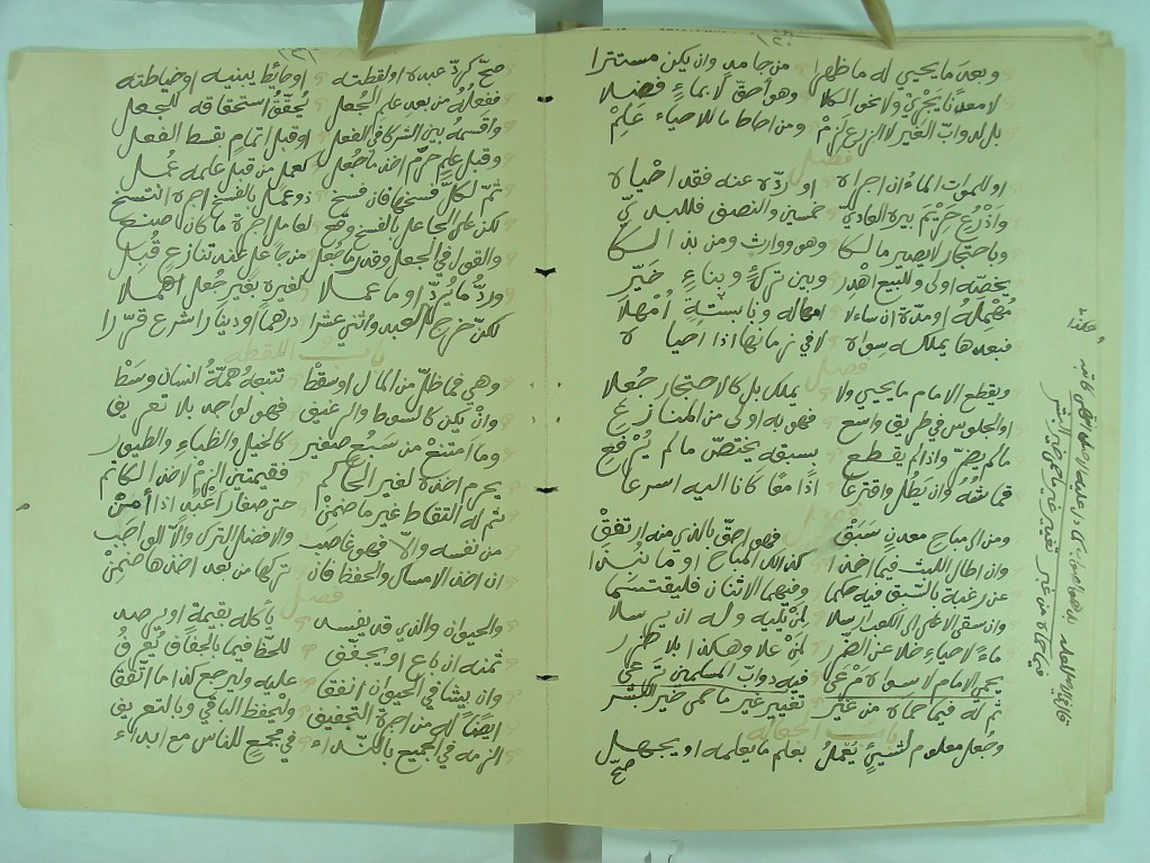 وبعدَ ما يحيي له ما ظهرا من جامدٍ وان يكن مستترا
لا معدنًا يجري ولا نحو الكلا وهو أحقّ لا بماءٍ فضلا
بل لدوابّ الغير لا الزرع لزمْ ومن احاط ما للاحياء عَلِمْ
فصل
او للموات الماءَ ان اجراه او ردّه عنه فقد احياه
وأذرع حريم بيره العاديّ خمسين والنصف فللبديّ
وباحتجار لا يصير مالكا وهو ووارث ومن بذالكا
يخصّه اولى وللبيع اهدر وبين تركهٍ وبناءٍ خَيّر
مُهْمِلَهُ او مدّة ان ساءلا امهاله ونابستةٍ أمهلا
فبعدها يملكه سواه لا في زمانها اذا احياه
فصل
ويقطع الامام ما يحيي ولا يملك بل كالاحتجار جُعلا
او الجلوس في طريق واسع فهو به اولى من المنازع
ما لم يضرّ واذا لم يقطع بسبقه يختصّ ما لم يُرْفع
قماشُهُ وان يَطُل واقترعا اذًا معًا كانا اليه اسرعا
فصل
ومن الى مباح معدنٍ سَبَقْ فهو احقّ بالذي منه ارتفقْ
وان اطال اللبث فيما اخذا كذالك المباح او ما نُبِذا
عن رغبة بالسبق فيه حكما وفيهما الاثنان فليقتسما
وان سقى الاعلى الى الكعب ارسلا لمنْ يليه وله ان يرسلا
ماءً لاحياءٍ خلا عن الضّرر لمنْ علا وهكذا بلا ضرر
يحمي الامام لا سواه مَرْعَى فيه دوابّ المسلمين تَرعى
ثم له فيما حماه من غيّر تغيير غير ما حمى خير البشر
باب الجعاله
وجُعل معلوم لشيئٍ يُعْملُ بعلم ما يعلمه او يجهل
صحّ
صحّ كردّ عبده او لقطته او حائطٍ يبنيه او خياطته
ففعلُهُ من بعد علم الجُعل يُحقّق استحقاقه للجعل
واقسمهُ بين الشركا في الفعل او قبل اتمام بقسط الفعل
وقبل علمٍ حَرّم اخذ ما جُعل كعمل من قبل علمه عُمل
ثمّ لكلّ فسخها فان فسخ ذو عمل بالفسخ اجره انتسخ
لكن على الجاعل بالفسخ وقع لعامل اجرة ما كان صنع
والقول في الجعل وقدر ما جُعل من جاعل عند تنازع قُبل
وردُّ ما يُردّ او ما عملا لغيره بغير جُعل اهملا
لكنّ خرج العبد واثني عشرا درهما او دينارا شرع قرّرا
باب اللقطه
وهي فما ظلّ من المال او سقطْ تتبعهُ همّةُ انسان وسَطْ
وانْ يكن كالسوط والرغيف فهو لواجد بلا تعريف
وما امتنعْ من سَبُعٍ صغير كالخيل والظباءِ والطيور
يحرم اخذه لغير الحاكم فقيمتين الزمْ لاخذ الكاتم
ثم له التقاط غير ما ضمنْ حتى صغار أعبُد اذا أمنْ
من نفسه والّا فهو غاصب والافضل الترك والّا الواجب
ان اخذ الامساك والحفظ فان تركها من بعد اخذها ضمِنْ
فصل
والحيوان والذي قد يفسد يأكله بقيمة او يرصد
ثمنه ان باع او يجفّف للحظّ فيما بالجفاف يُعرفُ
وان يشا في الحيوان انفقا عليه وليرجع كذا ما اتّفقا
ايضًا له من اجرة التجفيف ولْيحفظ الباقي وبالتعريف
الزمه في الجميع بالنّداء في مجمع للناس مع ابداء